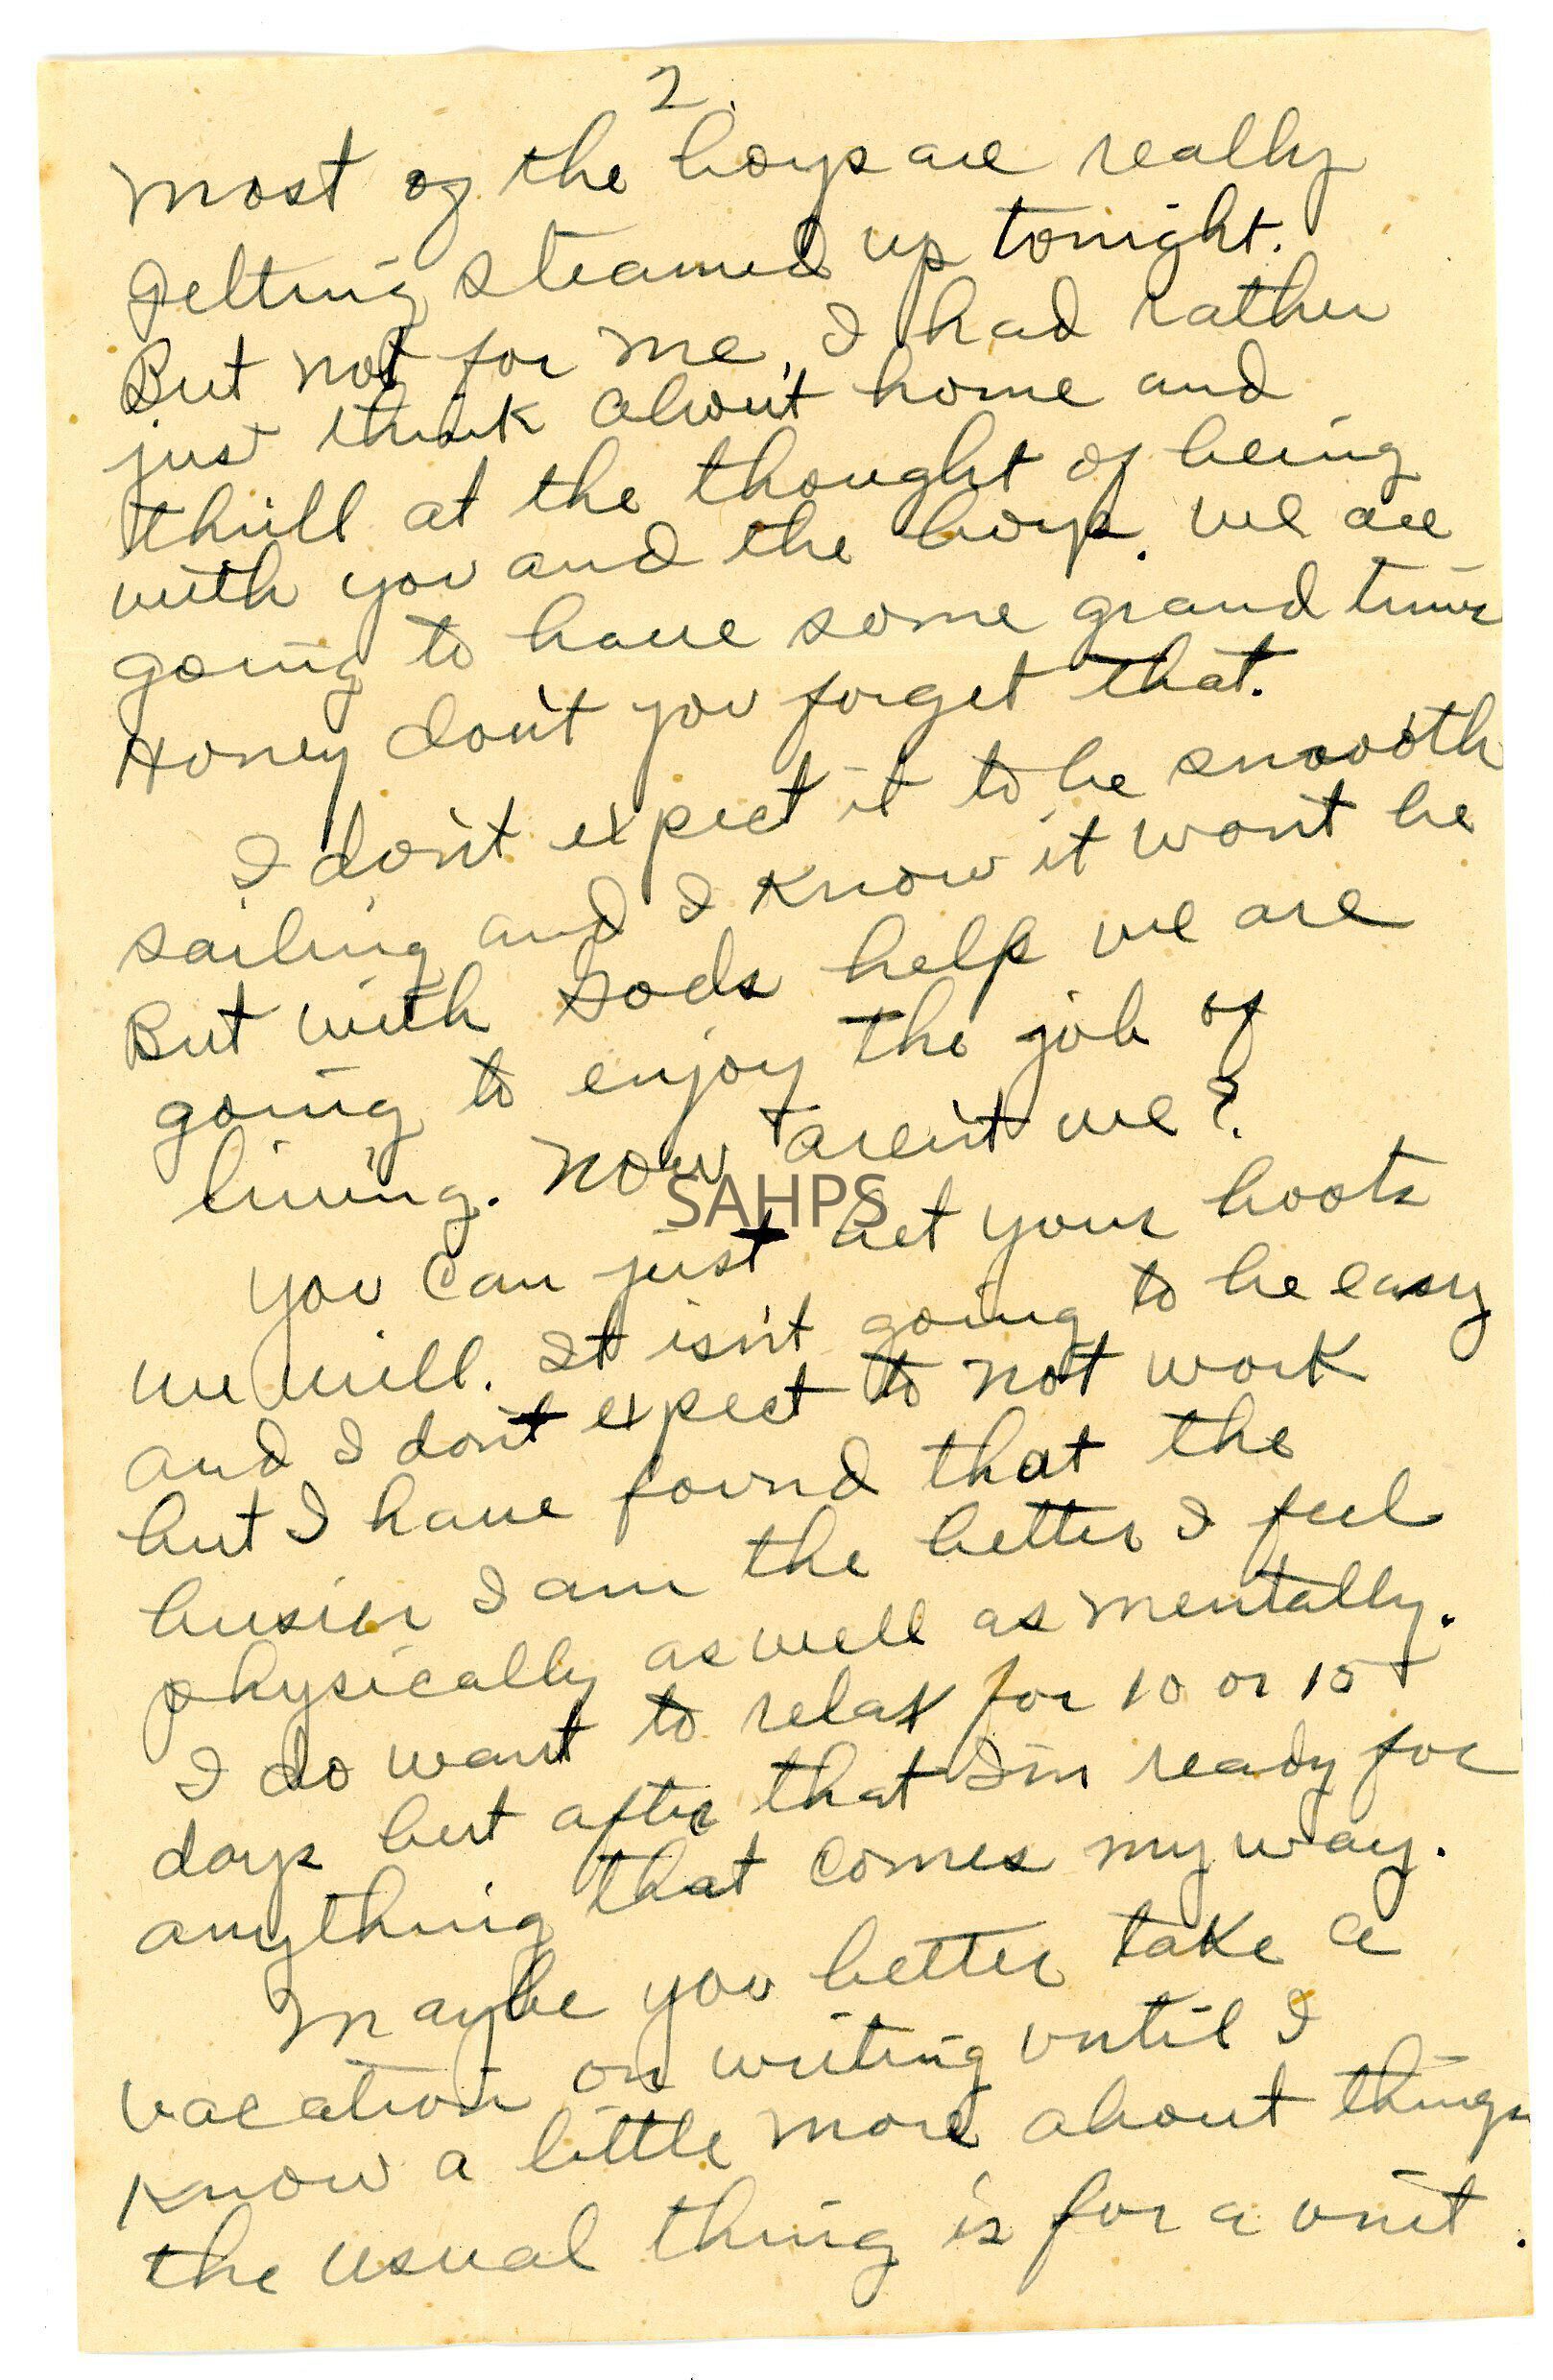 2.
Most of the boys are really
getting steamed up tonight.
But not for me, I had rather
just think about home and
thrill at the thought of being
with you and the boys. We are
going to have some grand times
Honey don't you forget that.
I don't expect it to be smooth
sailing and I know it won't be
But with Gods help we are
going to enjoy the job of
living. Now aren't we?
SAHPS
You can just bet your boots
we will. It isn't going to be easy
and I don't expect to not work
but I have found that the
busier I am the better I feel
physically as well as mentally.
I do want to relax for 10 or 15
days but after that I'm ready for
anything that comes my way.
Maybe you better take a
vacation on writing until I
know a little more about things
the usual thing is for a unit.